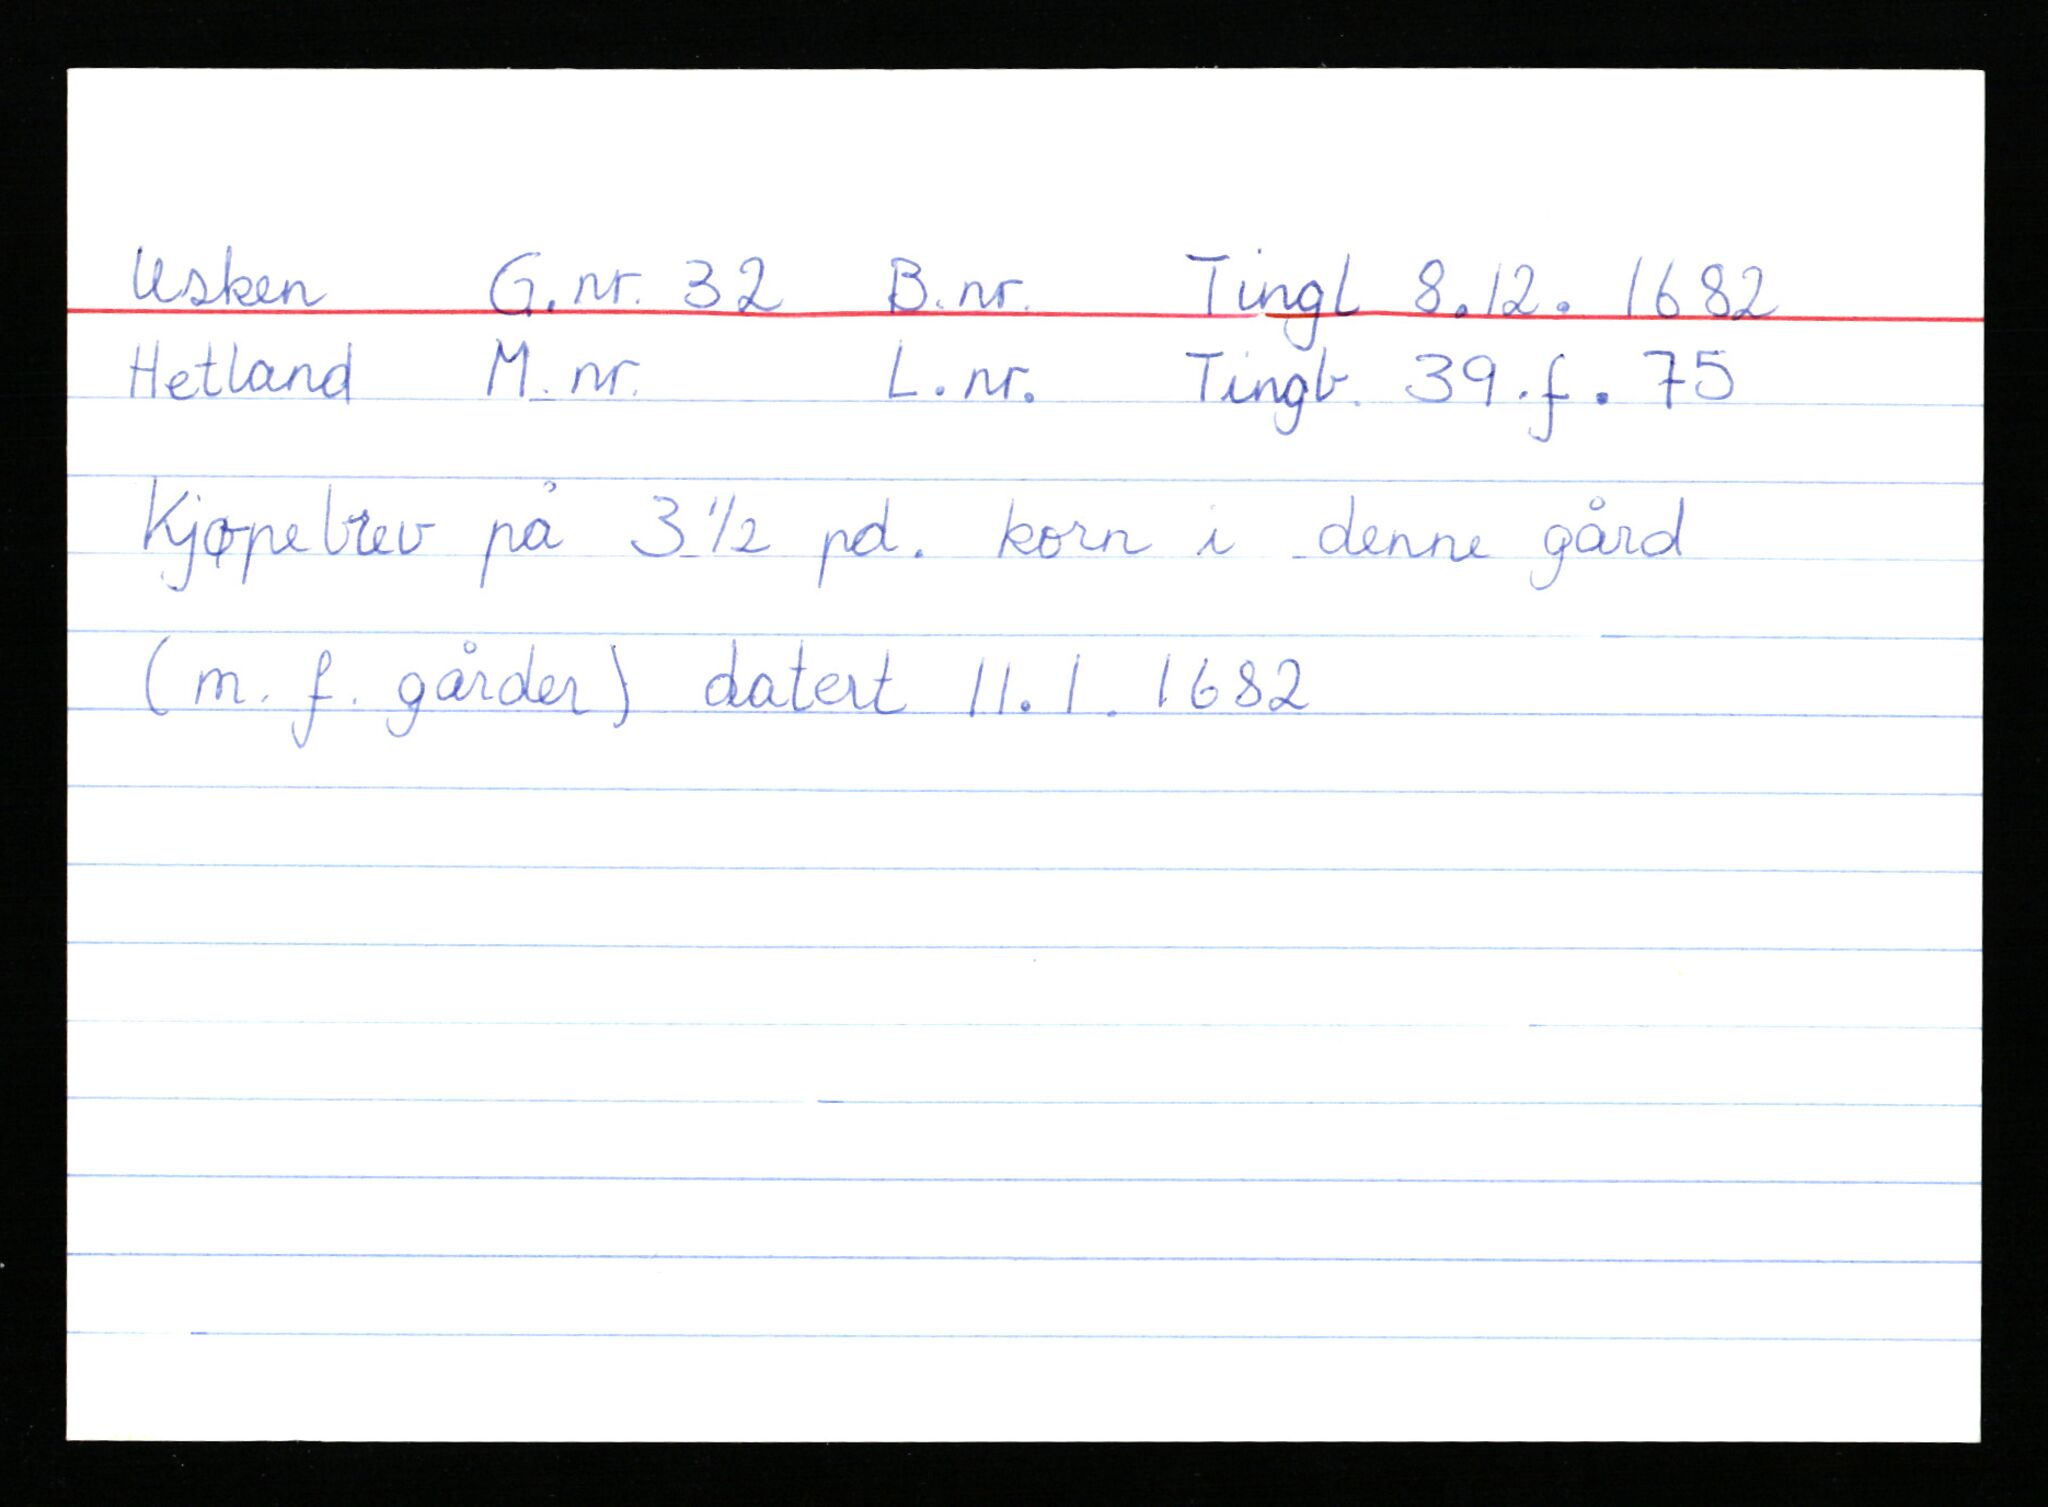 Usken G.nr. 32 B.nr. Tingl 8.12. 1682
Hetland M.nr. L.nr. Tingb. 39.f. 75
Kjøpebrev på 3 1/2 pd. korn i denne gård
(m. f. gårder) datert 11.1.1682